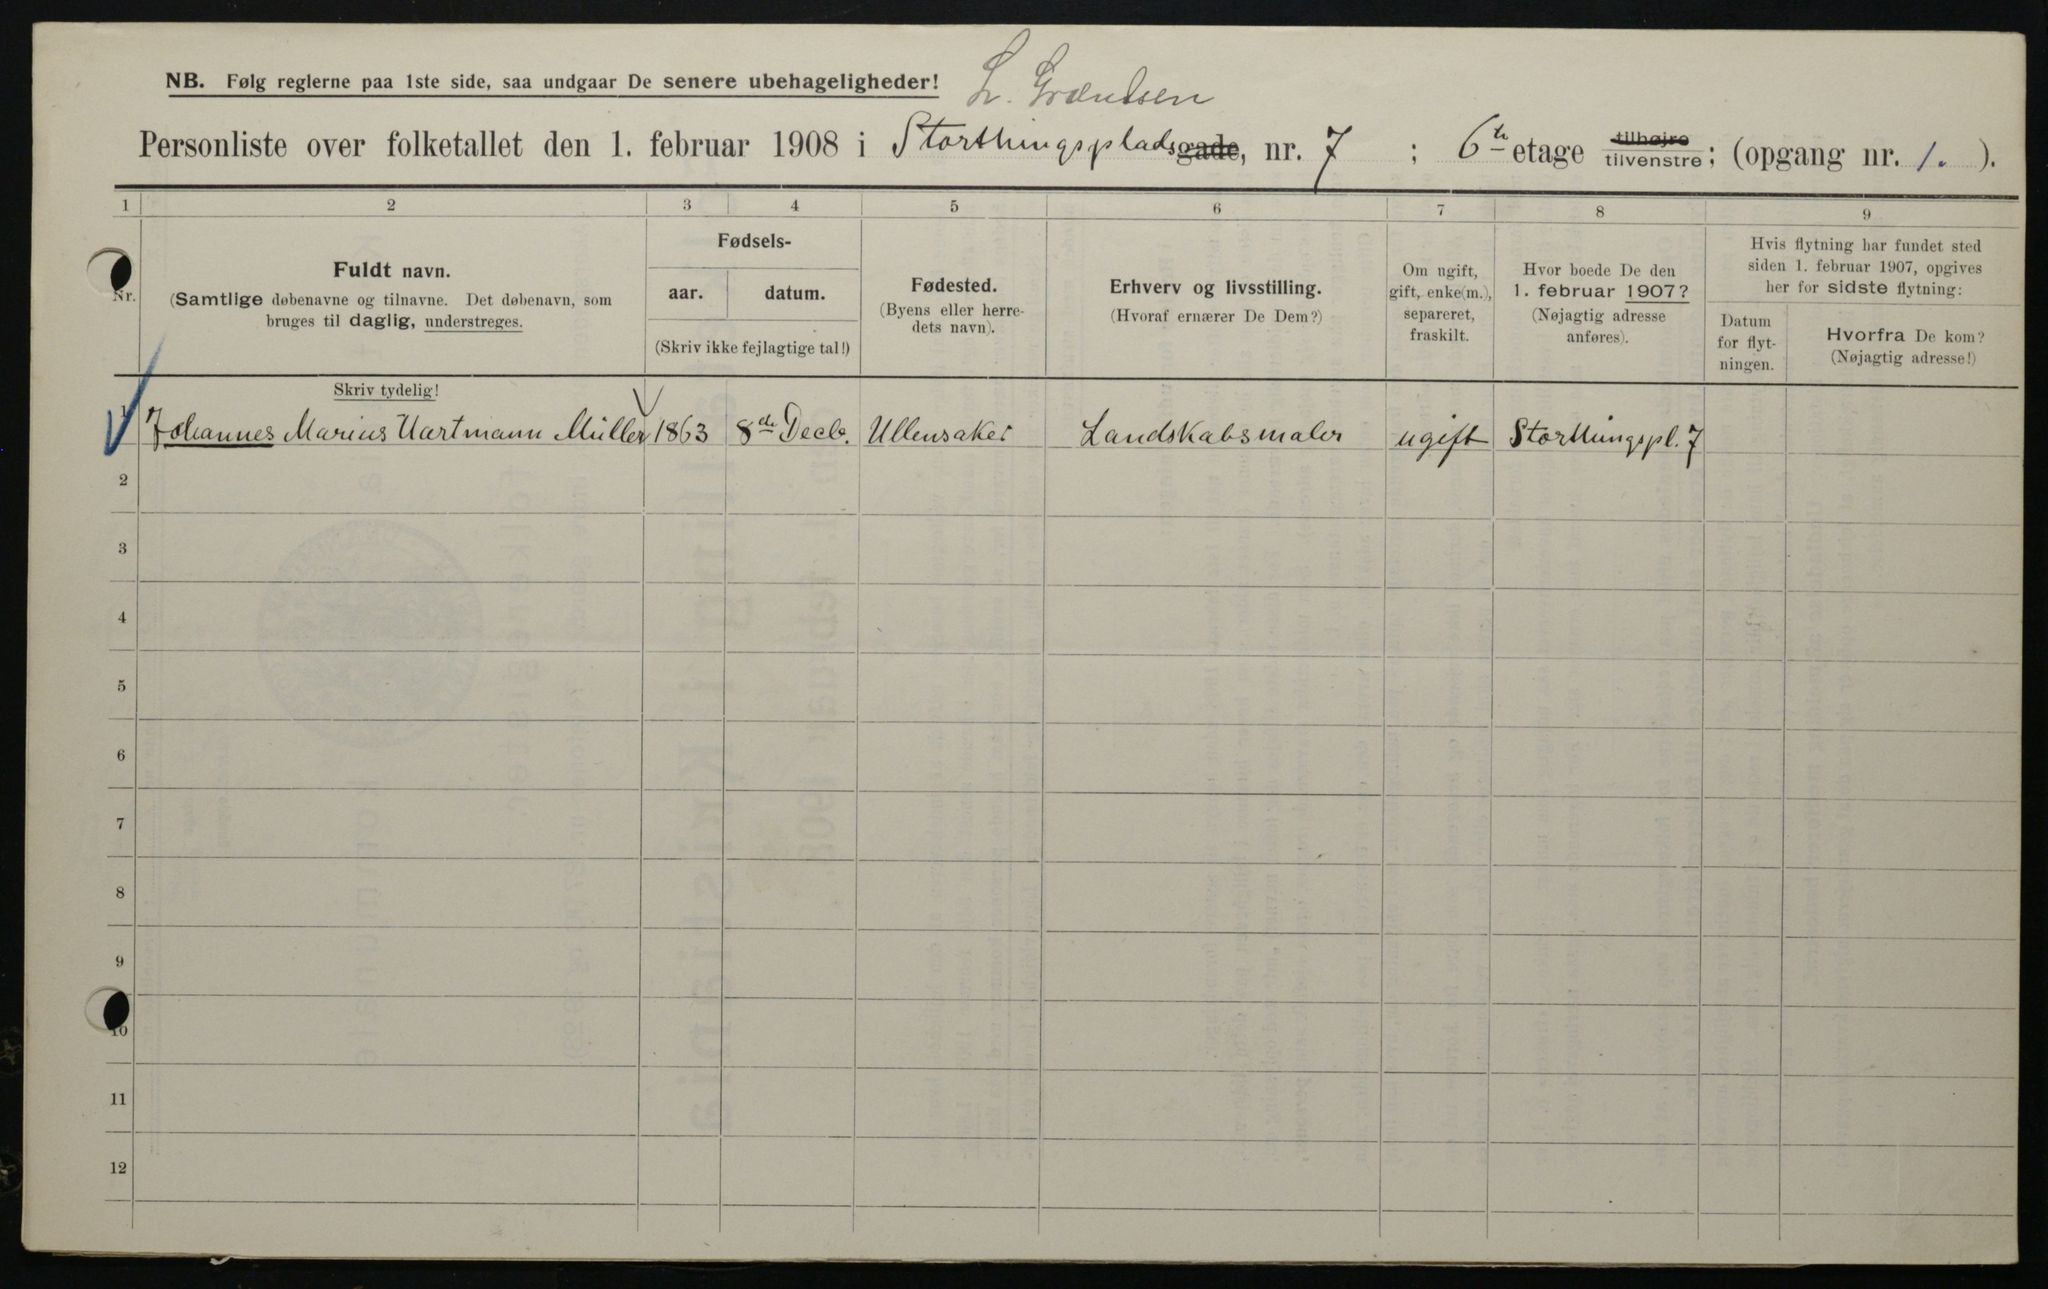 NB. Følg reglerne paa 1ste side, saa undgaar De senere ubehageligheder!
Personliste over folketallet den 1. februar 1908 i Storthingsplads gade, nr. 7 ; 6te etage tilhøjre tilvenstre; (opgang nr. 1. ).
1 2 3 4 5 6 7 8 9
Nr.
Fuldt navn.
(Samtlige døbenavne og tilnavne. Det døbenavn, som
bruges til daglig, understreges.
Fødsels-
aar. datum.
(Skriv ikke fejlagtige tal!)
Fødested.
(Byens eller herre-
dets navn).
Erhverv og livsstilling.
(Hvoraf ernærer De Dem?)
Om ugift,
gift, enke(m.),
separeret,
fraskilt.
Hvor boede De den
1. februar 1907?
(Nøjagtig adresse
anføres).
Hvis flytning har fundet sted
siden 1. februar 1907, opgives
her for sidste flytning:
Datum
for flyt-
ningen.
Hvorfra De kom?
(Nøjagtig adresse!)
Skriv tydelig!
1 Johannes Marius Hartmann Müller 1863 8de Decb. Ullensaker Landskabsmaler ugift Storthingspl. 7
2
3
4
5
6
7
8
9
10
11
12